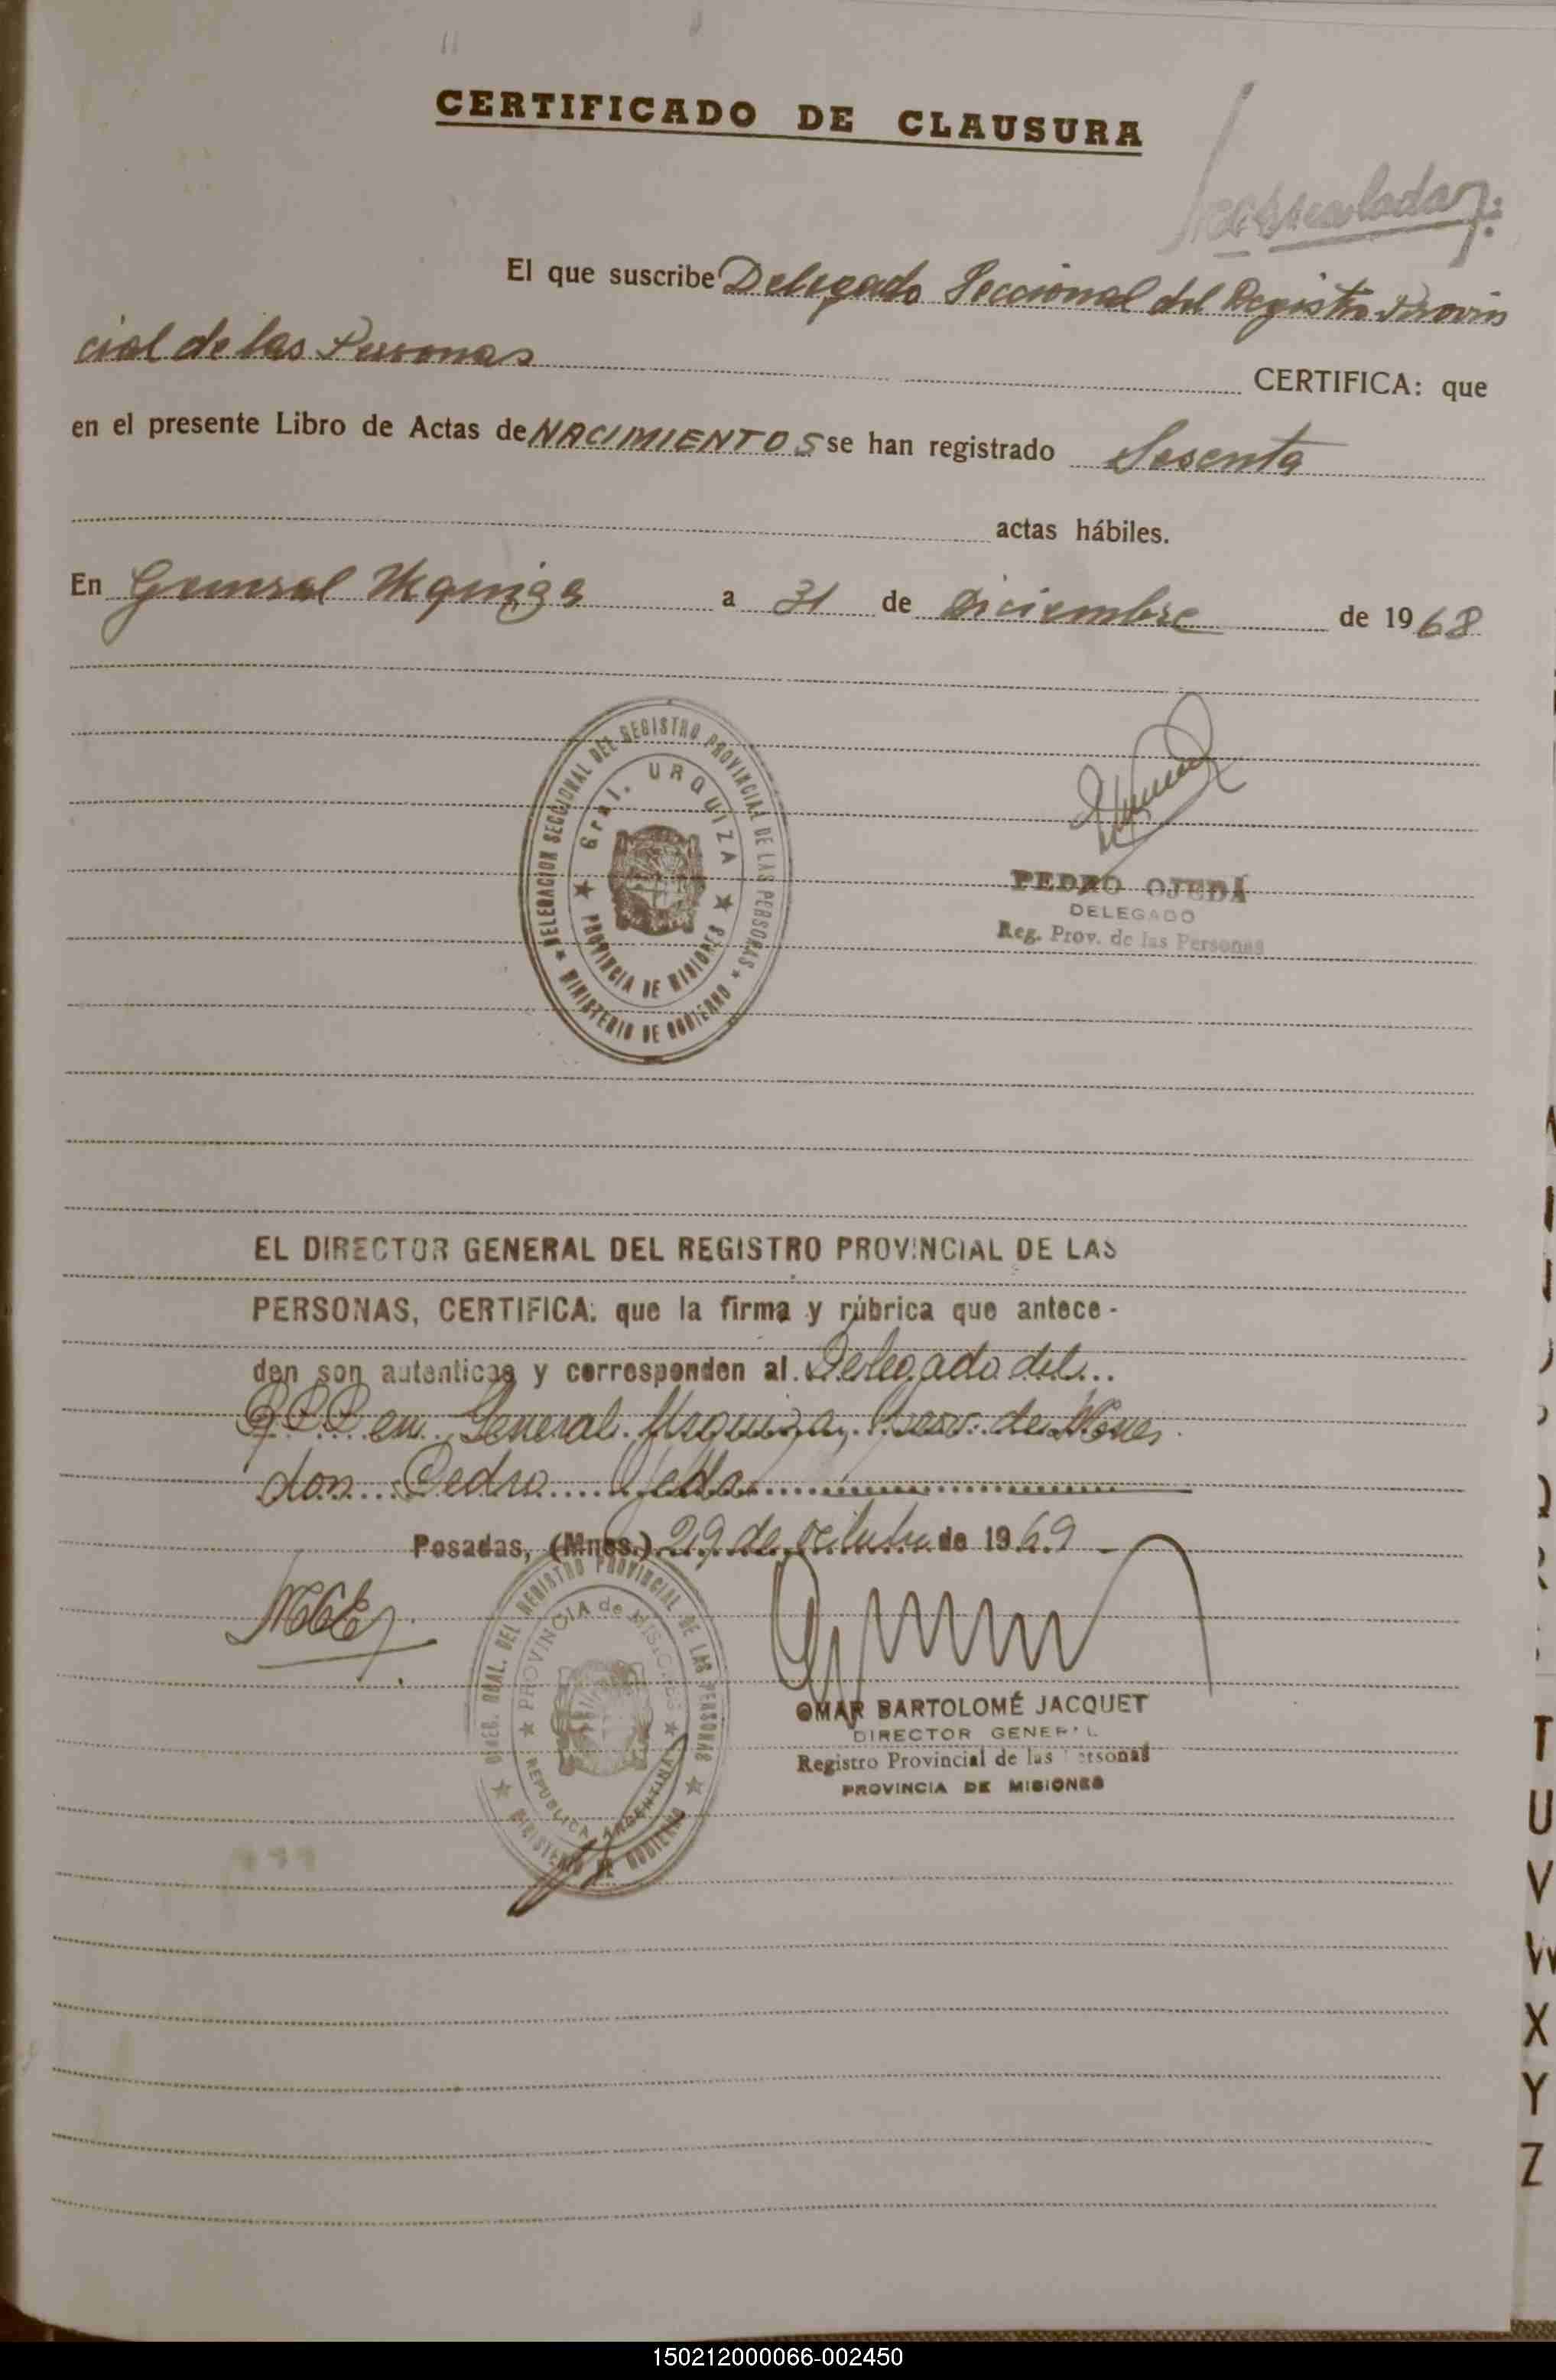 CERTIFICADO DE CLAUSURA
El que suscribe Delegado Seccional del Registro Provin
cial de las Personas CERTIFICA: que
en el presente Libro de Actas de NACIMIENTOS se han registrado Sesenta
actas hábiles.
En General Urquiza a 31 de Diciembre de 1968
DELEGACION SECCIONAL DEL REGISTRO PROVINCIAL DE LAS PERSONAS
Gral. URQUIZA
PROVINCIA DE MISIONES
MINISTERIO DE GOBIERNO
PEDRO OJEDA
DELEGADO
Reg. Prov. de las Personas
EL DIRECTOR GENERAL DEL REGISTRO PROVINCIAL DE LAS
PERSONAS, CERTIFICA: que la firma y rúbrica que antece-
den son autenticas y corresponden al Delegado del
RPP en General Urquiza, Prov. de Mnes
don Pedro Ojeda
Posadas, (Mnes.) 29 de octubre de 1969
DIREC. GRAL. DEL REGISTRO PROVINCIAL DE LAS PERSONAS
PROVINCIA de MISIONES
REPUBLICA ARGENTINA
MINISTERIO DE GOBIERNO
OMAR BARTOLOMÉ JACQUET
DIRECTOR GENERAL
Registro Provincial de las Personas
PROVINCIA DE MISIONES
T
U
V
W
X
Y
Z
150212000066-002450